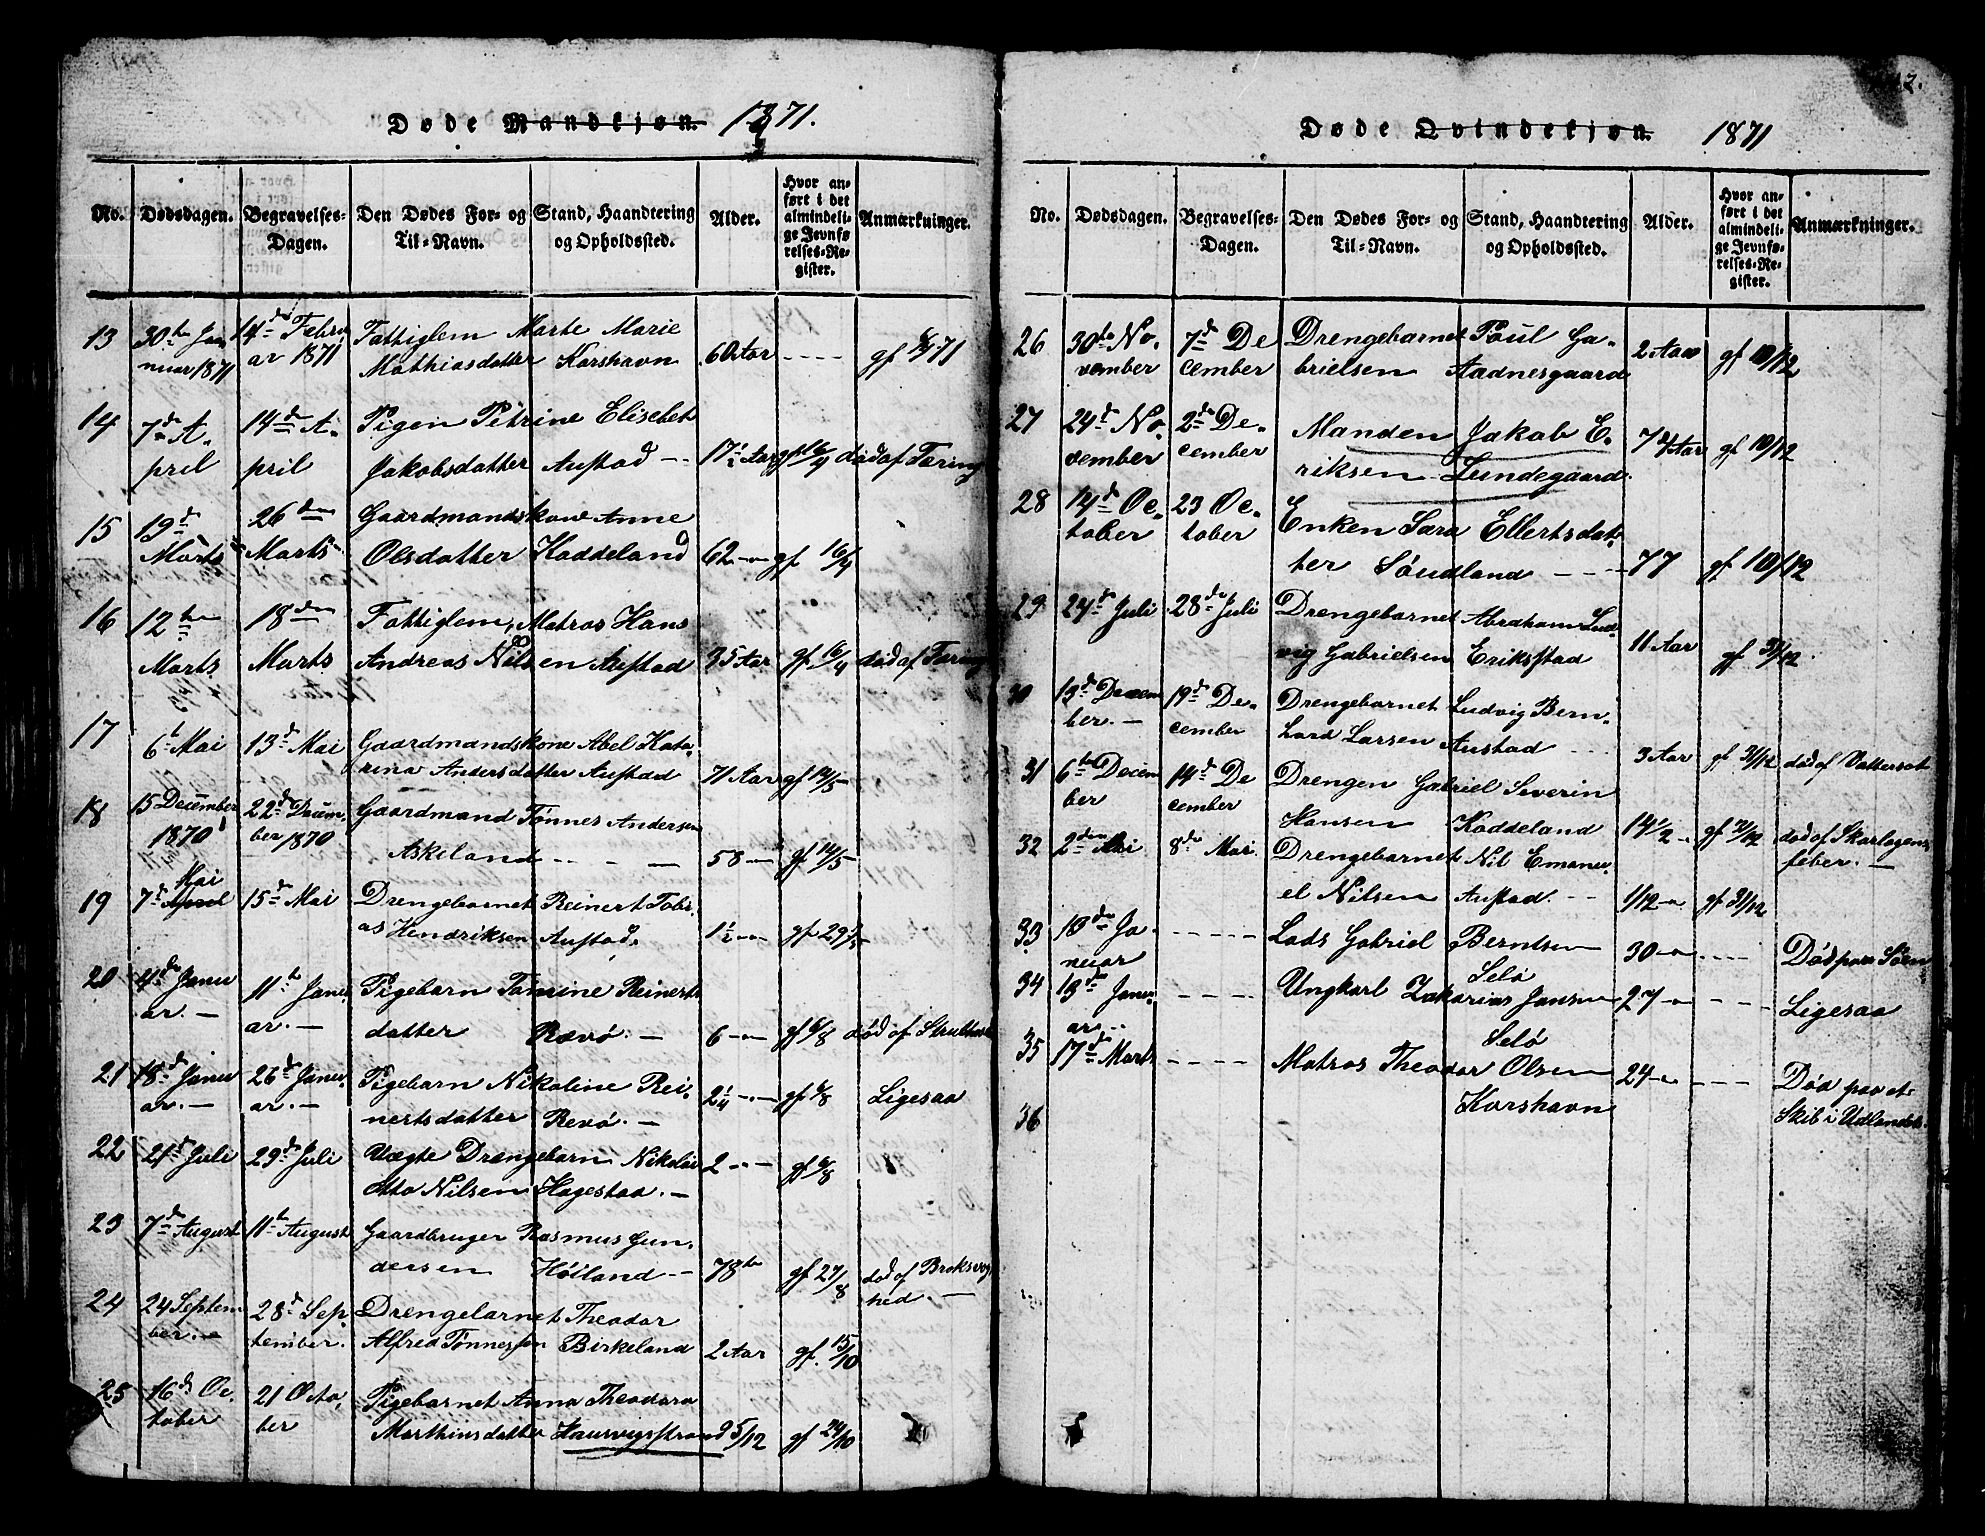 Døde Mandkjøn. 1871.
No. Dødsdagen. Begravelses-Dagen. Den Dødes For- og Til-Navn. Stand, Haandtering og Opholdssted. Alder. Hvor anført i det almindelige Jevnførelses-Register. Anmærkninger.
13 30te Ja- 14de Febru Fattiglem Marte Marie
nuar 1871 ar 1871 Mathiasdatter Korshavn 60 Aar - - - - gf 71
14 7de A- 14de A- Pigen Petrine Elisebet
pril pril Jakobsdatter Austad -- 17½ Aar gf 16/4 død af Tæring
15 19de 26den Gaardmandskone Anne
Marts Marts Olsdatter Kaddeland 62 -"- gf 16/4
16 12te 18den Fattiglem, Matros Hans
Marts Marts Andreas Nilsen Austad 35 Aar gf 16/4 død af Tæring
17 6te Mai 13de Mai Gaardmandskone Abel Kata-
rina Andersdatter Austad 71 Aar gf 14/5
18 15 December 22de Decem- Gaardmand Tønnes Andersen
1870 ber 1870 Askeland - - - 58 -"- gf 14/5
Mai
19 7de April 15de Mai Drengebarnet Reinert Tobi-
as Hendriksen Austad. 1½ -"- gf 29/5
20 4de Janu 11te Janu Pigebarn Tomine Reinerts
ar. - ar. - datter Rævø. - 6 -"- gf 6/8 død af Strubhoste
21 18de Janu 26de Janu- Pigebarn Nikoline Rei-
ar. - ar. - nertsdatter Revø. - 2¼ -"- gf 6/8 Ligesaa
22 21de Juli 29de Juli Uægte Drengebarn Nikolai 2 -"- gf 6/8
Otto Nilsen Hagestad. -
23 7de August 11te August Gaardbruger Rasmus Gun-
dersen Høiland -- 78 gf 27/8 død af Broksvag
hed. -
24 24 Septem 28de Sep- Drengebarnet Theodor
ber. - tember. Alfred Tønnessen Birkeland 2 Aar gf. 15/10
25 16de Oc- 21 Octo- Pigebarnet Anna Theodora
tober ber Marthinsdatter Haurvigstrand 5/12 gf 24/10
Døde Qvindekjøn. 1871
No. Dødsdagen. Begravelses-Dagen. Den Dødes For- og Til-Navn. Stand, Haandtering og Opholdssted. Alder. Hvor anført i det almindelige Jevnførelses-Register. Anmærkninger.
26 30te No- 7de De Drengebarnet Poul Ga-
vember cember brielsen Aadnesgaard 2 Aar gf 10/12
27 24de No- 2de De- Manden Jakob E-
vember cember riksen Lundegaard. Aar gf 10/12
28 14de Oc- 23 Oc- Enken Sara Ellertsdat-
tober tober ter Søndland - - - 77 gf 10/12
29 24de Juli 28de Juli Drengebarnet Abraham Lud-
vig Gabrielsen Eriksstad 11 Aar gf 31/12
30 13de Decem 19de De- Drengebarnet Ludvig Bern-
ber. - cember hard Larsen Austad - - - 3 Aar gf 31/12 død af Vattersot
31 6te Decem 14de De Drengen Gabriel Severin
ber cember Hansen Kaddeland 14½ - gf 31/12 død af Skarlagens-
feber. -
32 2den Mai 8de Mai. Drengebarnet Nil Emanu-
el Nilsen Austad. - - 1/12 -"- gf 31/12
33 18de Ja- - - - - - Lods Gabriel Berntsen 30 -"- - - - Død paa Søen
nuar Selø
34 19de Janu- - - - - Ungkarl Zakarias Jansen 27 -"- - - - Ligesaa
ar - - Selø
35 17de Marts - - - - Matros Theodor Olsen 24 -"- - - - Død paa et
Korshavn Skib i Udlandet.
36